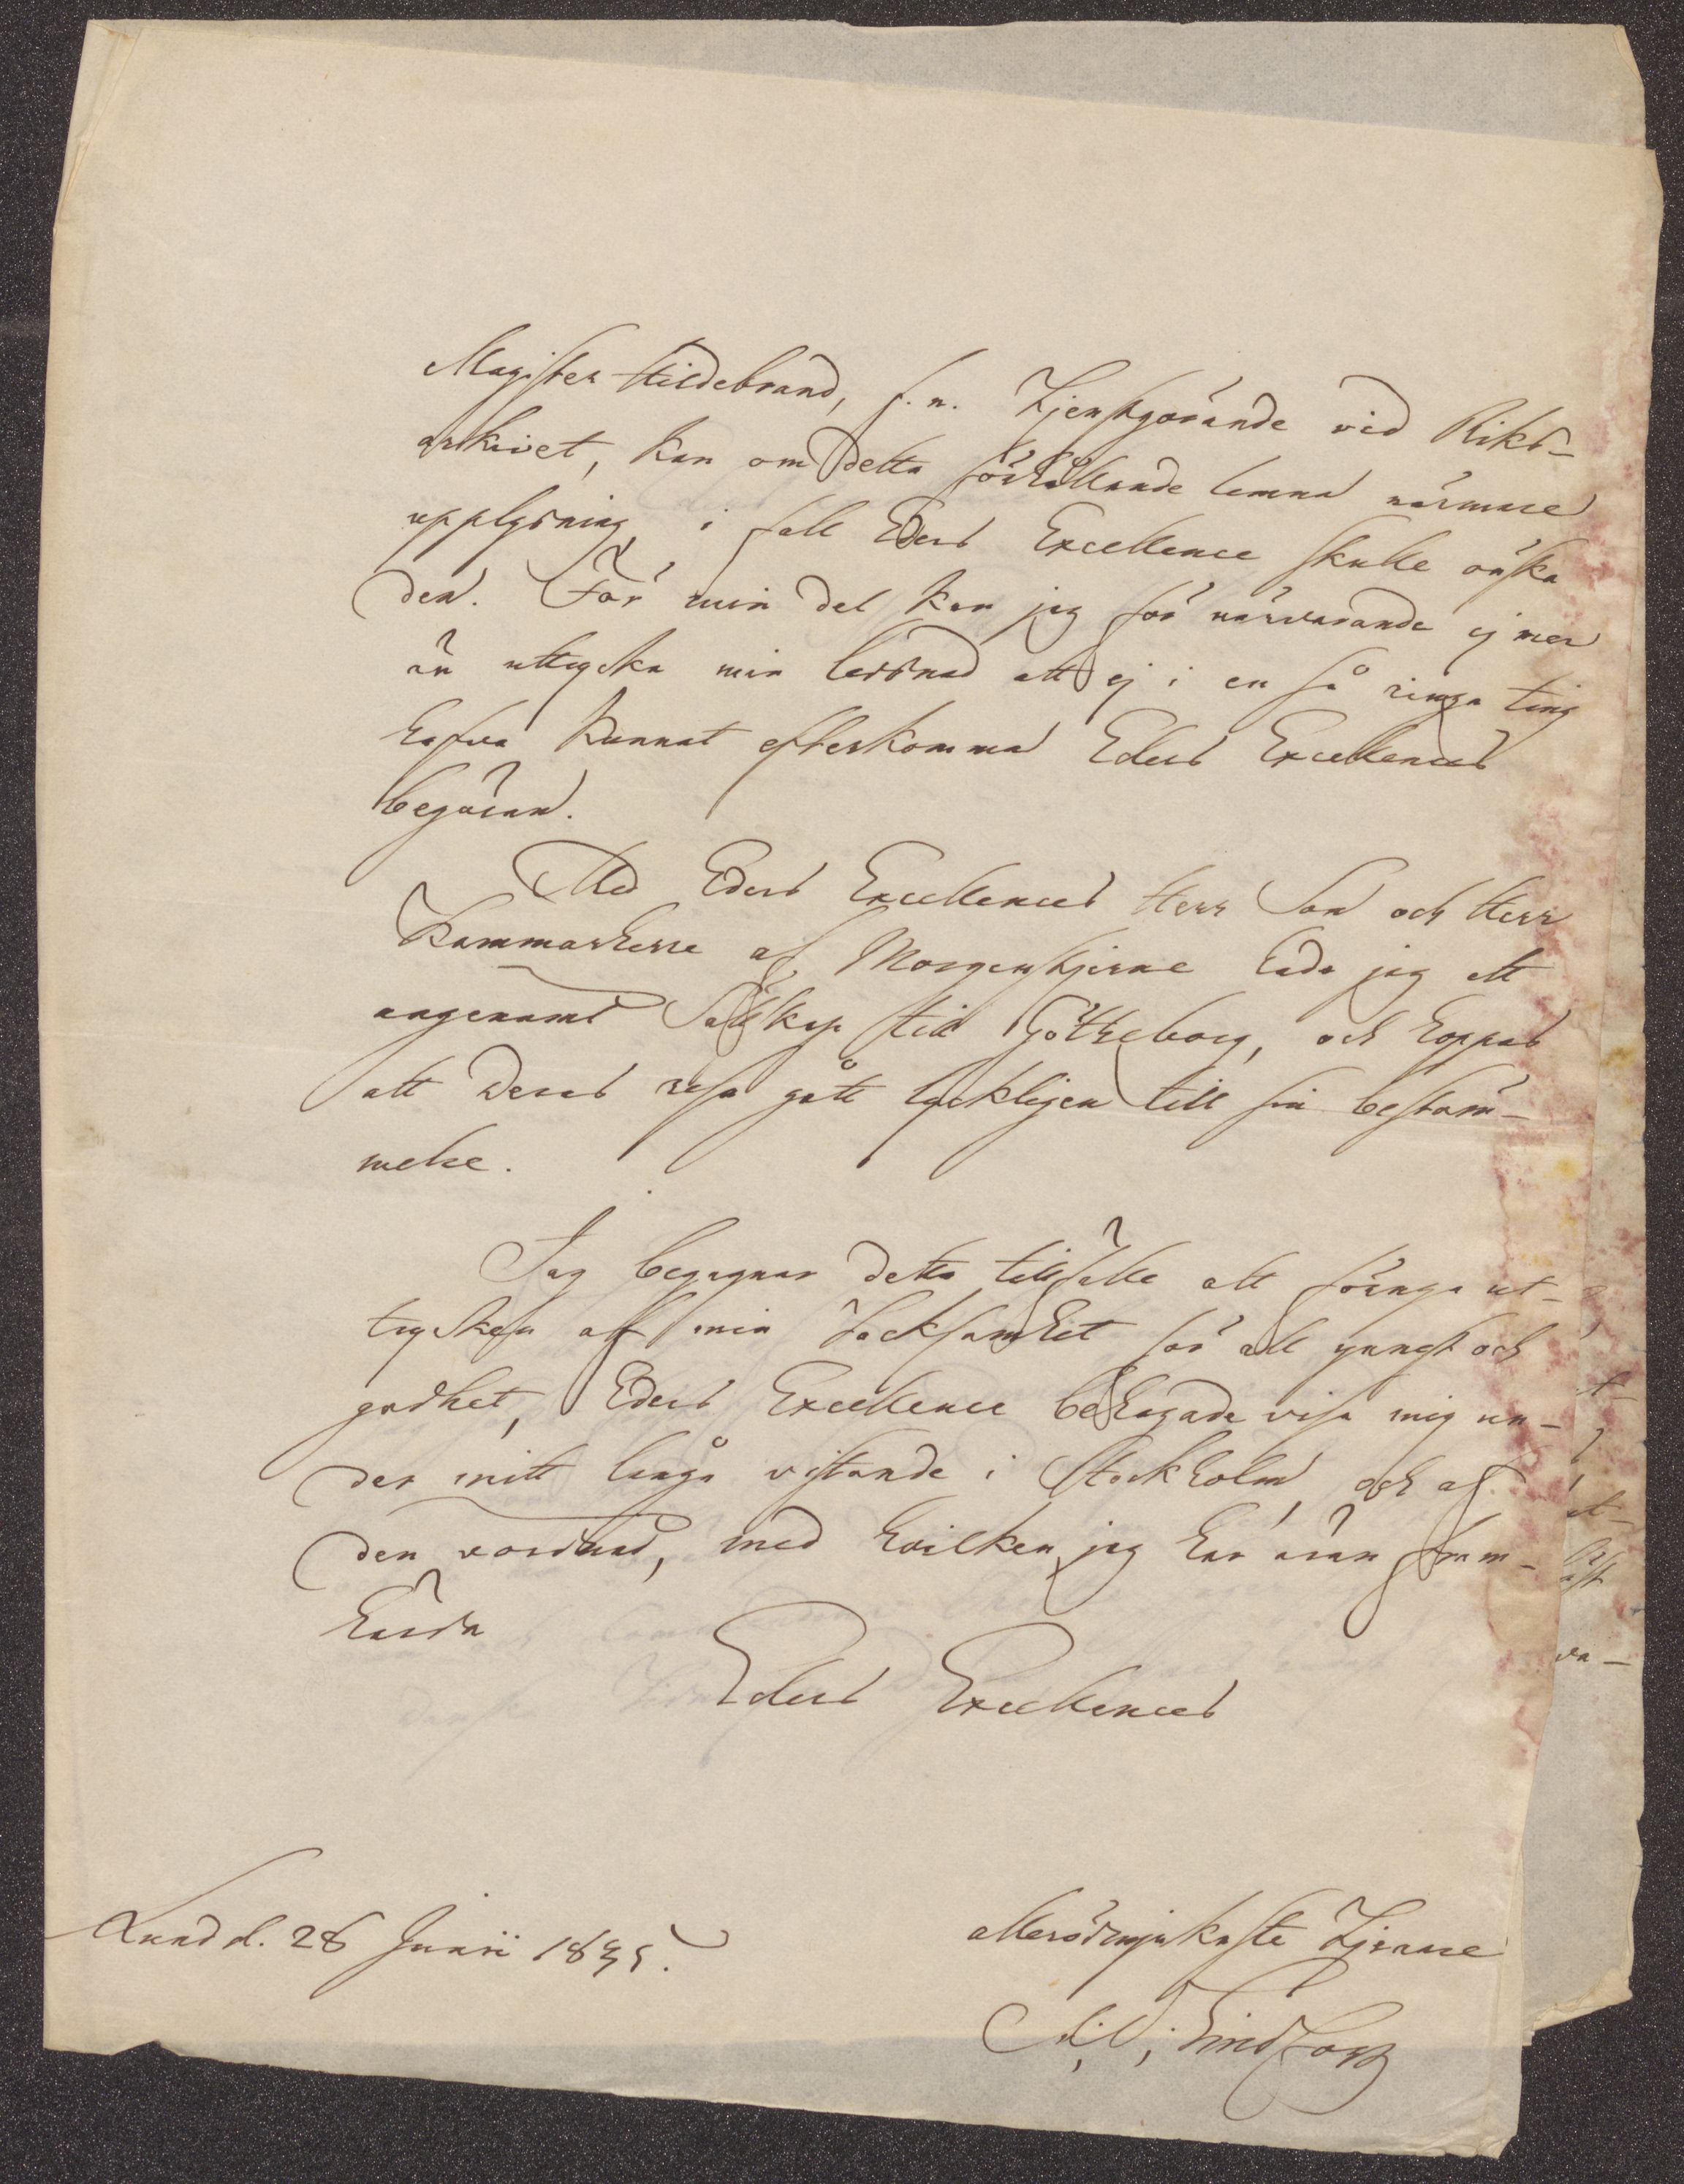 Magister Hildebrand, f. n. Tjenstgörande vid Riks-
arkivet, kan om detta förhållande lemna närmare
upplysning, i fall Eders Excellence skulle önska
den. För min del kan jag för närvarande ej mer
än uttrycka min ledsnad att ej i en så ringa ting
hafva kunnat efterkomma Eders Excellences
begäran.
Med Eders Excellences Herr Son och Herr
Kammarherre af Morgenstjerne hade jag ett
angenämt Sällskap till Götheborg, och hoppas
att Deras resa gått lyckligen till sin bestäm-
melse.
Jag begagnar detta tillfälle att förnya ut-
trycken af min Tacksamhet för all ynnest och
godhet, Eders Excellence behagade visa mig un-
der mitt långa vistande i Stockholm, och af
den vördnad, med hvilken jag har äran fram-
härda
Eders Excellences
Lund d. 28 Junii 1835.
allerödmjukaste Tjenare
Lindfors